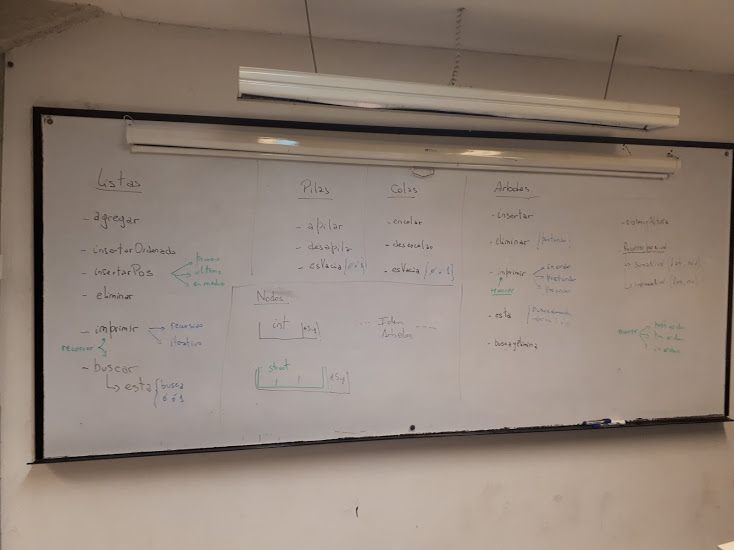 Listas
- agregar
- insertarOrdenado
- insertarPos
primero
último
en medio
- eliminar
- imprimir
recursivo
iterativo
recorrer
- buscar
↳ esta { busca
0 ó 1
Pilas
- apilar
- desapilar
- esVacia (0 ó 1)
Colas
- encolar
- desencolar
- esVacia (0 ó 1)
Nodos
int
*Sig
struct
*Sig
Idem
Arboles
- insertar
- eliminar
- imprimir
inorden
postorden
preorden
recorrer
- esta
- busca y elimina
recorrer